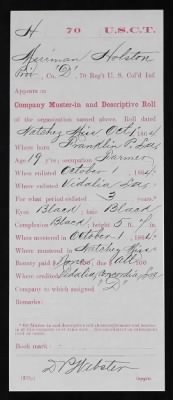 H 70 U.S.C.T.
Merriman Holston
Pvt, Co. "D", 70 Reg't U. S. Col'd Inf.
Appears on
Company Muster-in and Descriptive Roll
of the organization named above. Roll dated
Natchez Miss Oct 1, 1864
Where born Franklin P. La
Age 19 y'rs; occupation Farmer
When enlisted October 1, 1864.
Where enlisted Vidalia La.
For what period enlisted 3 years.
Eyes Black; hair Black
Complexion Black; height 5 ft. in.
When mustered in October 1, 1864.
Where mustered in Natchez Miss
Bounty paid $ None; due $
Where credited Vidalia, Concordia, La
Company to which assigned "D"
Remarks:
Book mark:
D P Webster
Copyist.